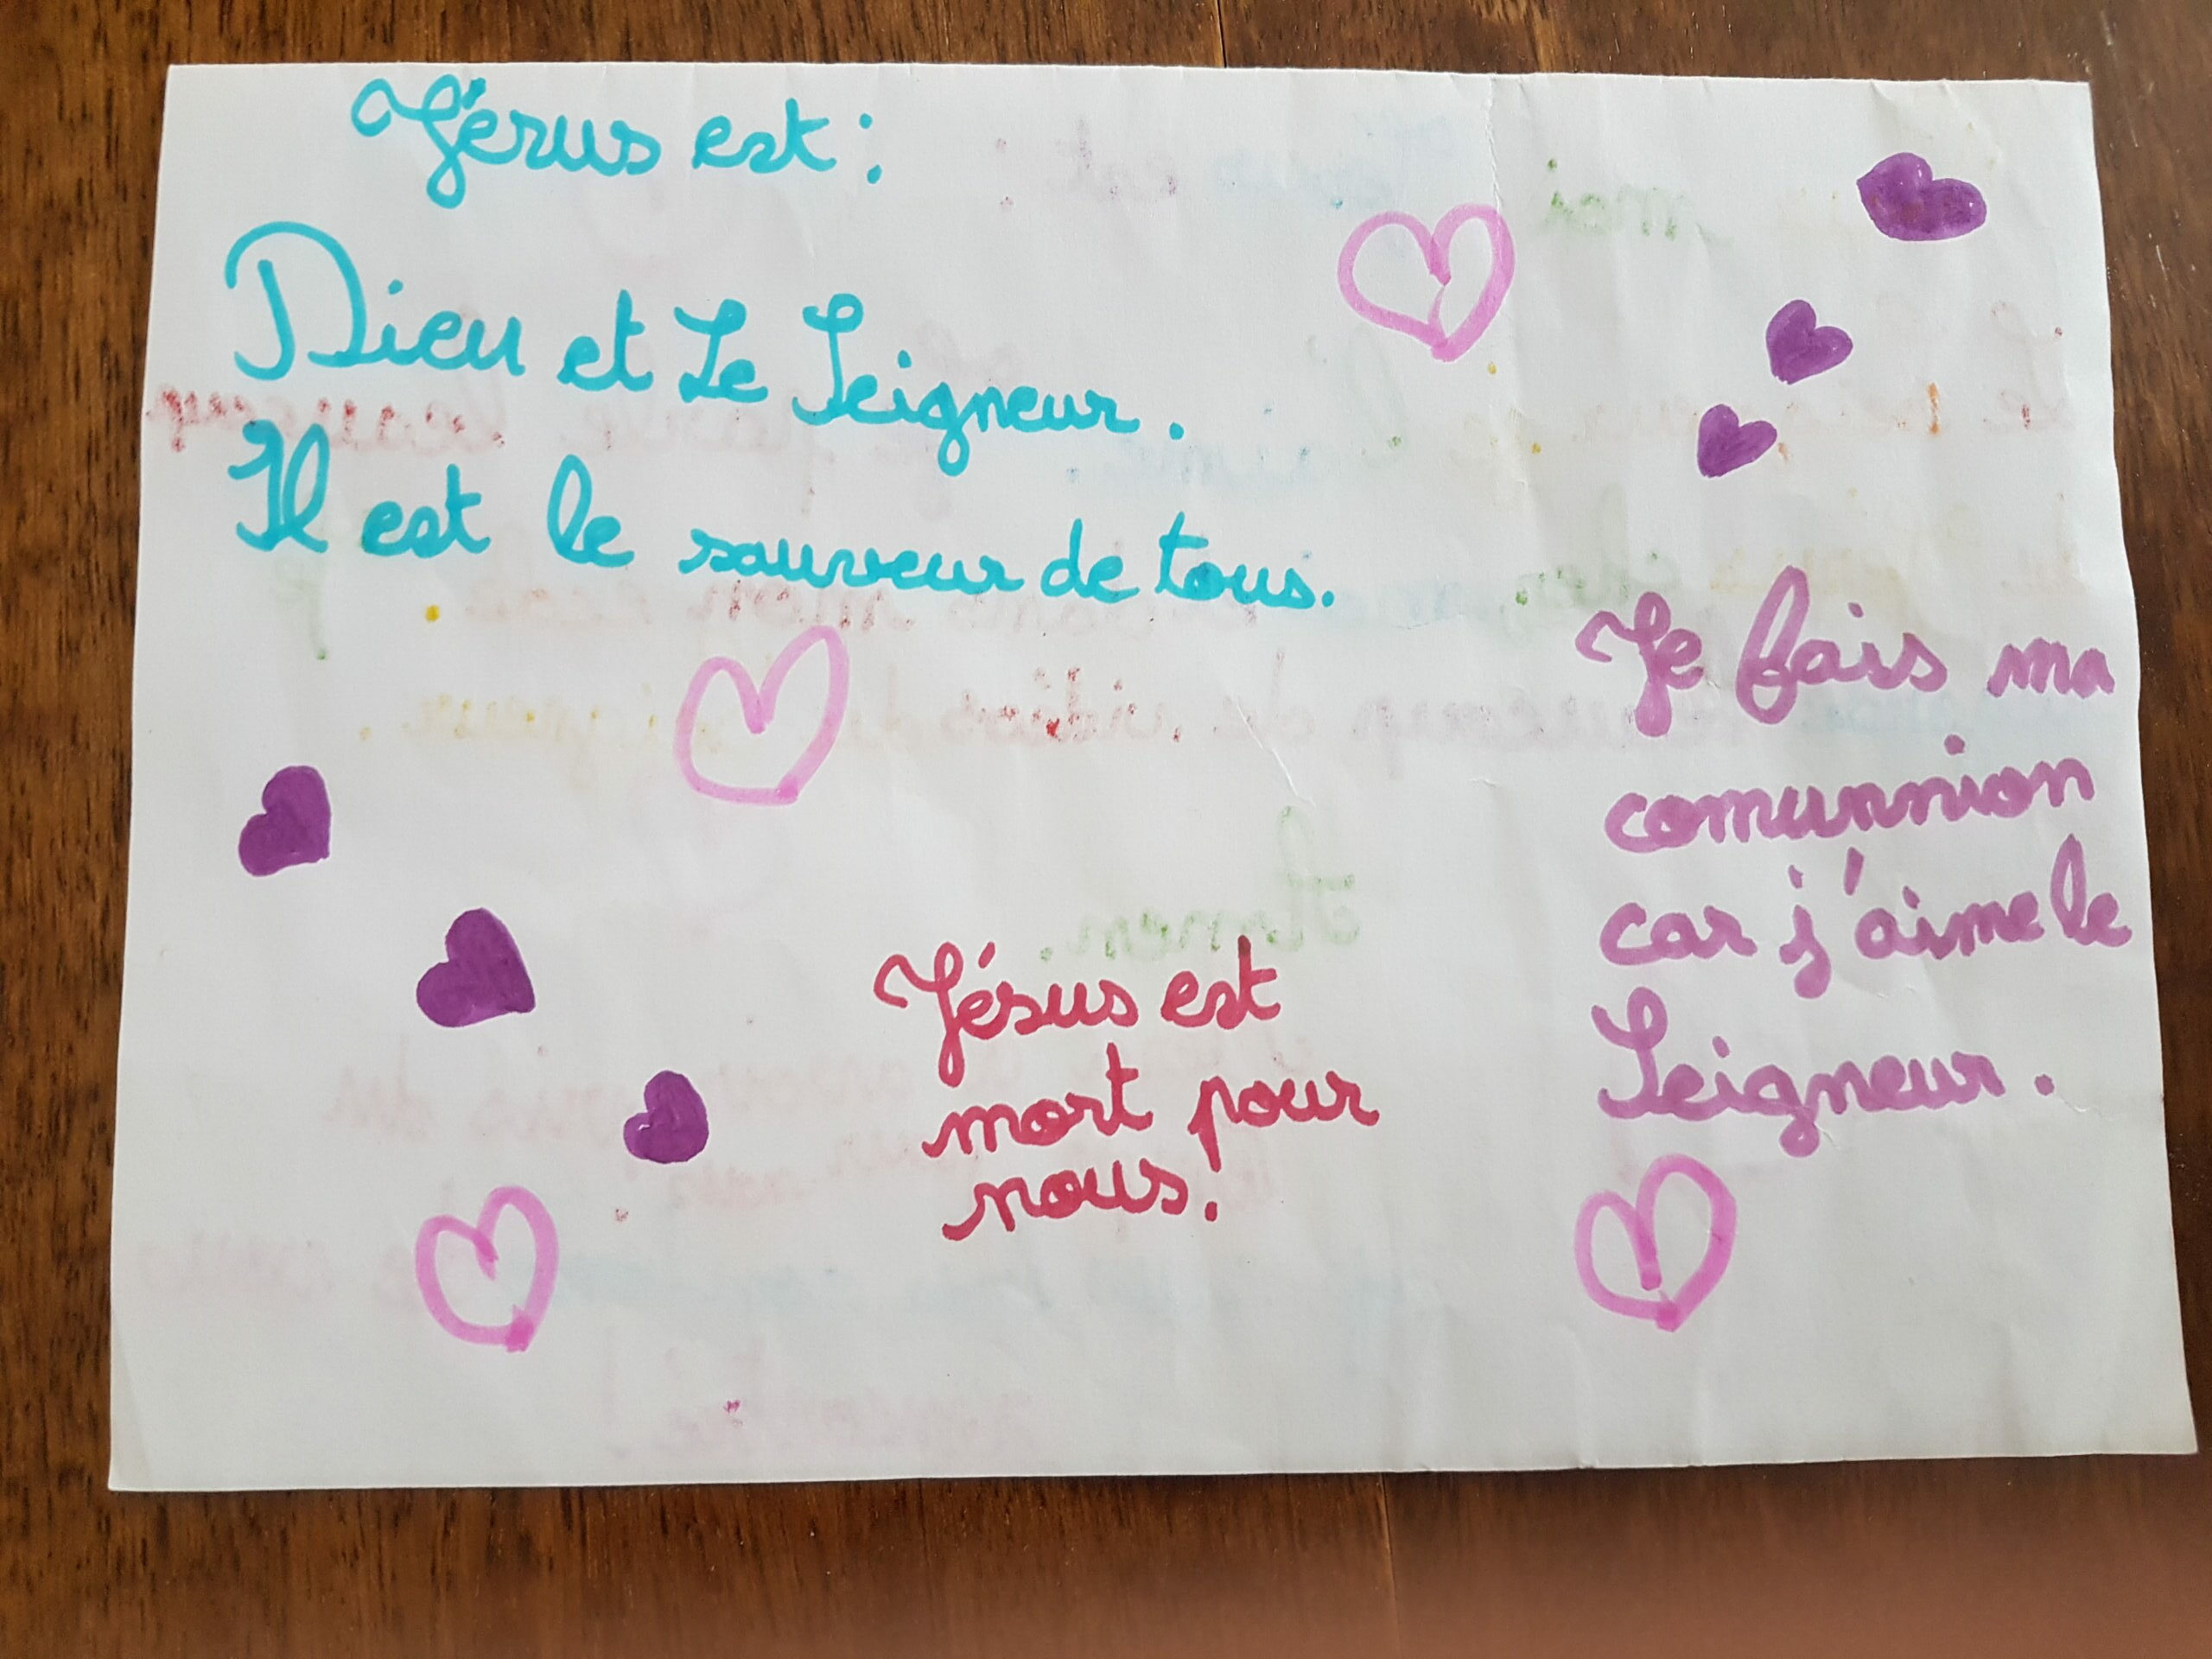 Jésus est :
Dieu et Le Seigneur.
Il est le sauveur de tous.
Je fais ma
comunnion
car j'aime le
Seigneur.
Jésus est
mort pour
nous.
Amen.